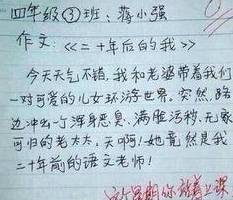 四年级③班：蒋小强
作文：<<二十年后的我>>
今天天气不错，我和老婆带着我们
一对可爱的儿女环游世界。突然，路
边冲出一个浑身恶臭、满脸污秽、无家
可归的老太太，天啊！她竟然是我
二十年前的语文老师！